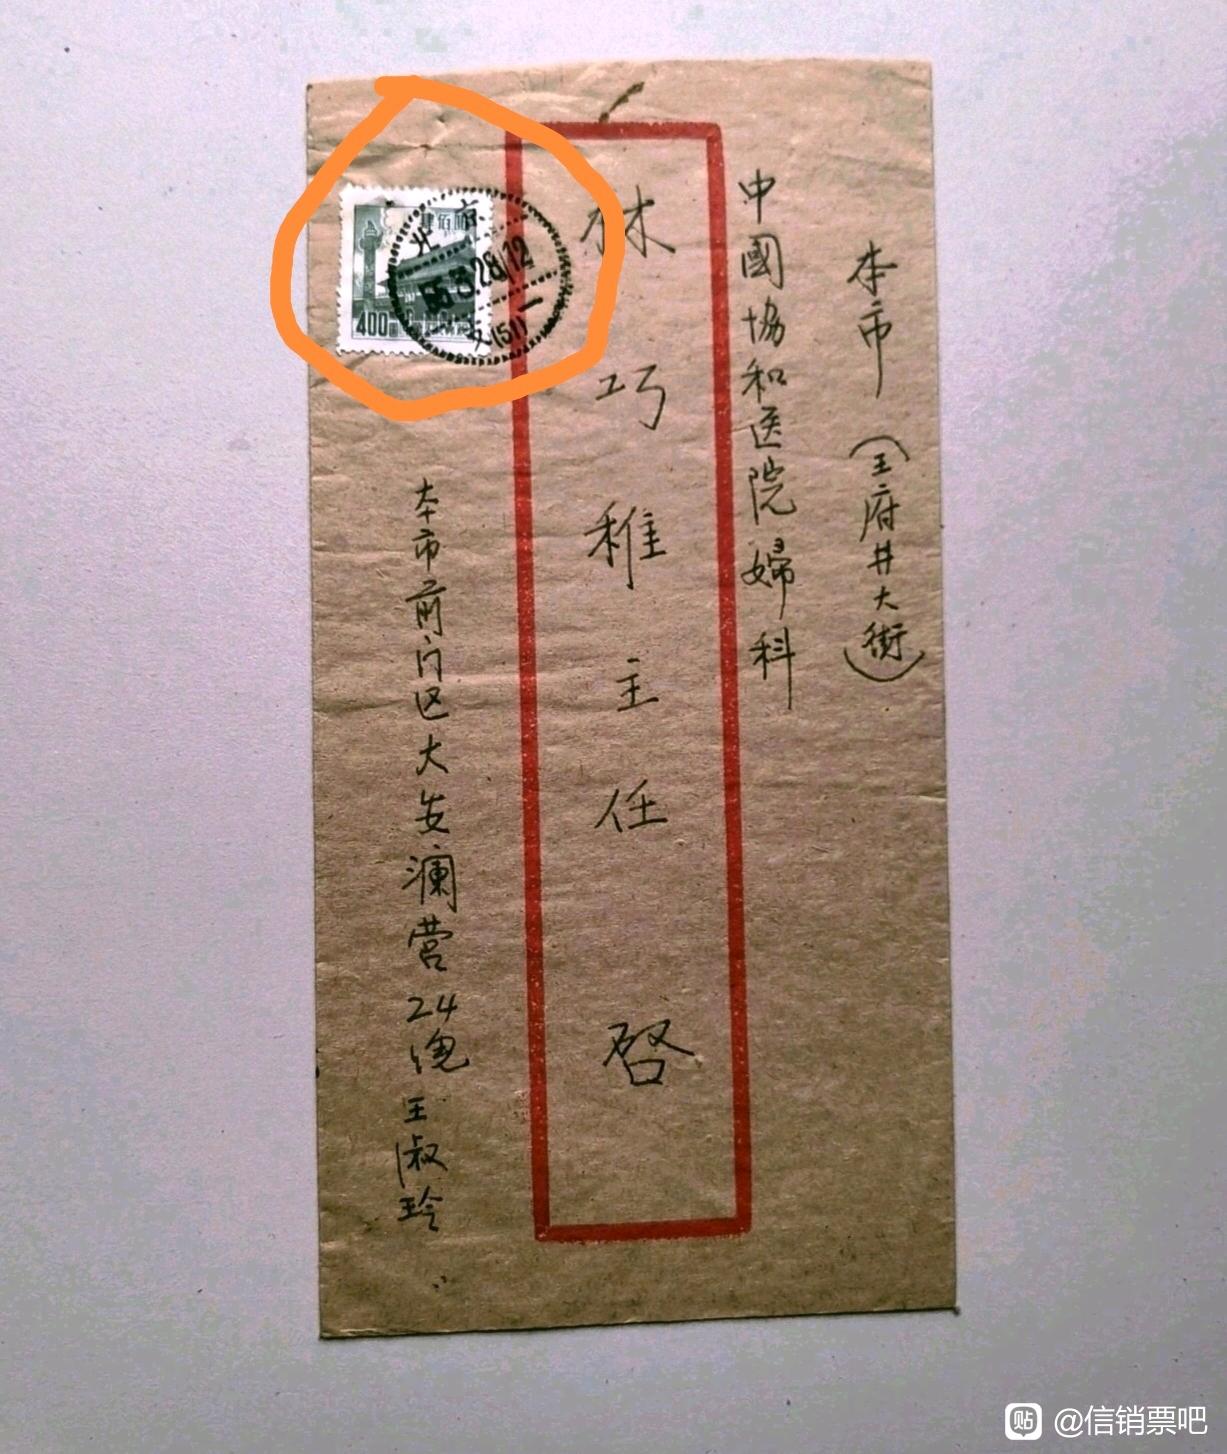 本市（王府井大街）
中國協和医院婦科
林巧稚主任 啓
肆佰圓
400
北京
55.3.28.12
支(51)一
本市前门区大安澜营24号 王淑玲
贴 @信销票吧